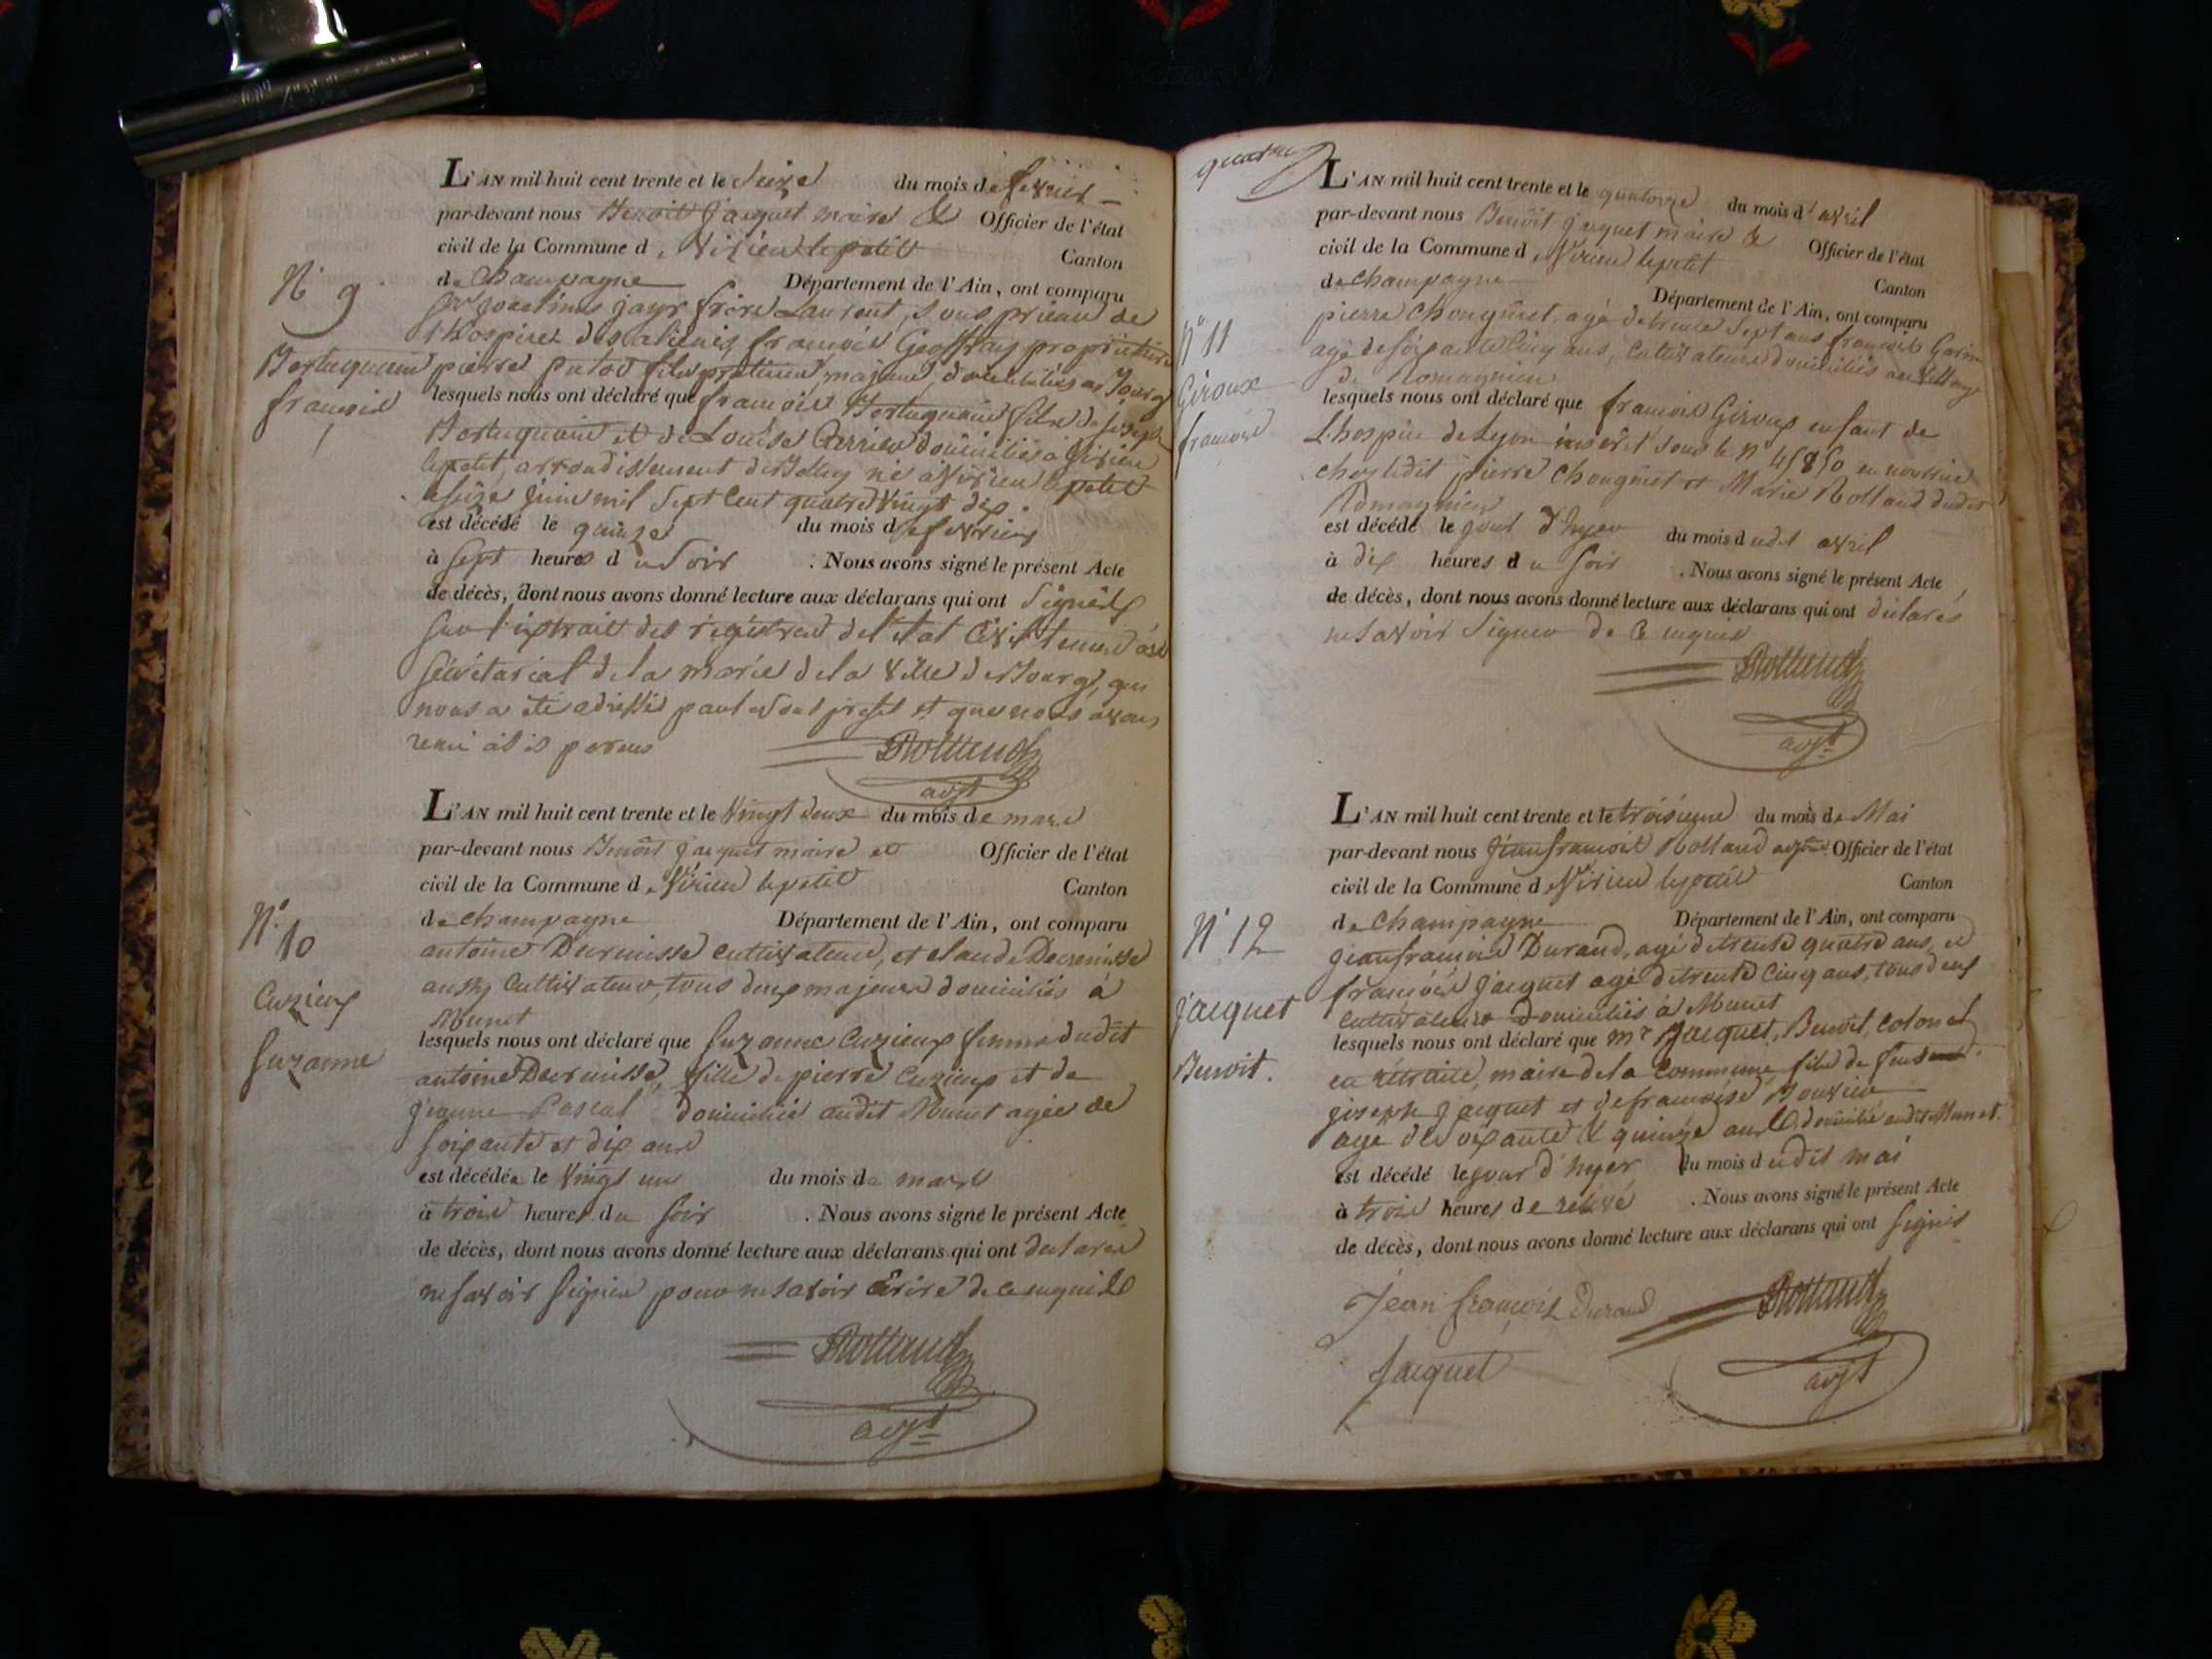 L'AN mil huit cent trente et le Seize du mois de fevrier
par-devant nous Benoit Jacquet maire & Officier de l'état
civil de la Commune de Virieu le petit Canton
de Champagne Département de l'Ain, ont comparu
N° 9
frère Laurent, Sous prieur de
l'hospice des aliénés, françois Geoffray propriétaire
françois
pierre fils praticien, majeurs, domiciliés à Bourg
lesquels nous ont déclaré que françois fils de Joseph
et de Louise domiciliés à Virieu
le petit, arrondissement de Belley né à Virieu le petit
le seize Juin mil Sept Cent quatre Vingt dix.
est décédé le quinze du mois de fevrier
à Sept heures du Soir . Nous avons signé le présent Acte
de décès, dont nous avons donné lecture aux déclarans qui ont Signés
sur l'extrait des régistres de l'état Civil tenus au
Sécrétariat de la marie de la Ville de Bourg, qui
nous a été adressé par le Sous prefet et que nous avons
Rolland
adjt
L'AN mil huit cent trente et le Vingt deux du mois de mars
par-devant nous Benoit Jacquet maire et Officier de l'état
civil de la Commune de Virieu le petit Canton
N° 10
de Champagne Département de l'Ain, ont comparu
antoine Decrenisse cultivateur, et claude Decrenisse
Cuzieux
aussy Cultivateur, tous deux majeurs domiciliés à
Munet
Suzanne
lesquels nous ont déclaré que Suzanne Cuzieux femme dudit
antoine Decrenisse, fille de pierre Cuzieux et de
jeanne Pascal domiciliée audit Munet agée de
Soixante et dix ans
est décédée le Vingt un du mois de mars
à trois heures du Soir . Nous avons signé le présent Acte
de décès, dont nous avons donné lecture aux déclarans qui ont declarés
ne savoir Signer pour ne savoir écrire de ce enquis
Rolland
adjt
quatre
L'AN mil huit cent trente et le quatorze du mois d'avril
par-devant nous Benoit Jacquet maire & Officier de l'état
civil de la Commune de Virieu le petit Canton
de Champagne Département de l'Ain, ont comparu
N° 11
pierre Chougnet, agé de trente Sept ans françois
agé de soixante Cinq ans, Cultivateurs domiciliés au Village
Giroux
de Romagnieu
françois
lesquels nous ont déclaré que françois Giroux enfant de
L'hospice de Lyon inscrit sous le n° 45850 en nourrice
chez ledit pierre Chougnet et Marie Rolland dudit
Romagnieu
est décédé le jour d'hyer du mois dudit avril
à dix heures du Soir . Nous avons signé le présent Acte
de décès, dont nous avons donné lecture aux déclarans qui ont déclarés
ne savoir Signer de Ce enquis
Rolland
adjt
L'AN mil huit cent trente et le troisieme du mois de Mai
par-devant nous Jean françois Rolland adjoint Officier de l'état
civil de la Commune de Virieu le petit Canton
N° 12
de Champagne Département de l'Ain, ont comparu
jean françois Durand, agé de trente quatre ans, et
Jacquet
françois Jacquet agé de trente Cinq ans, tous deux
cultivateurs domiciliés à Munet
Benoit.
lesquels nous ont déclaré que Mr Jacquet, Benoit, Colonel
en rétraite, maire de la Commune, fils de feu
joseph Jacquet et de françoise Bouvier
agé de Soixante & quinze ans, domicilié audit Munet.
est décédé le jour d'hyer du mois dudit mai
à trois heures de relevé . Nous avons signé le présent Acte
de décès, dont nous avons donné lecture aux déclarans qui ont Signés
Jean françois Durand
Rolland
Jacquet
adjt